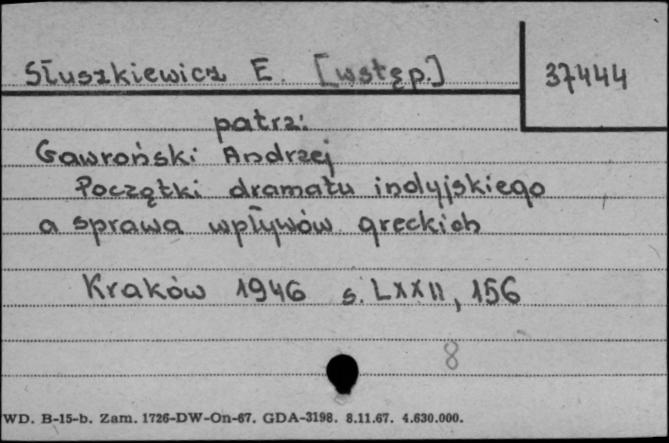 Słuszkiewicz E. [wstęp.] 37444
patrz:
Gawroński Andrzej
Początki dramatu indyjskiego
a sprawa wpływów greckich
Kraków 1946 s. LXXII, 156
8
WD. B-15-b. Zam. 1726-DW-On-67. GDA-3198. 8.11.67. 4.630.000.